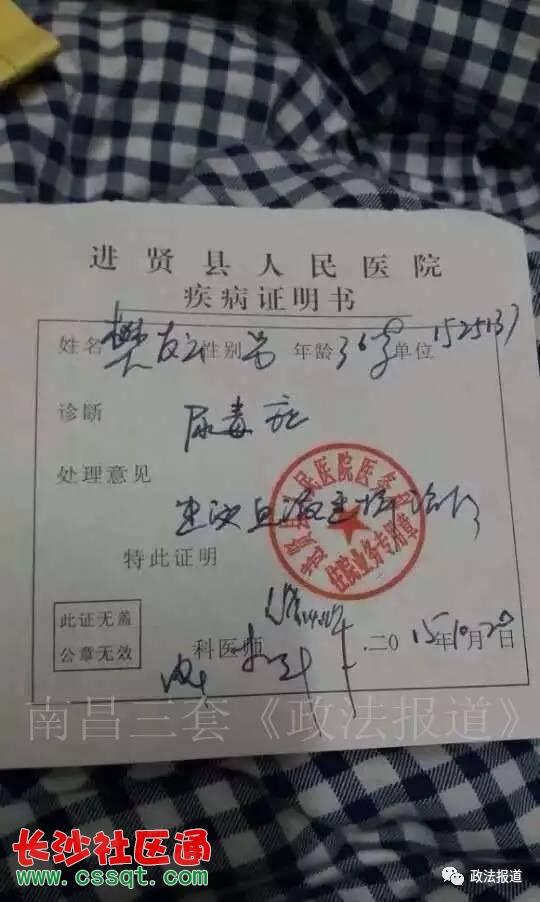 进贤县人民医院
疾病证明书
姓名 樊友 性别 男 年龄 36岁 单位 1525137
诊断 尿毒症
处理意见
建议血液透
医院医务
住院业务专用章
特此证明
此证无盖
公章无效
科医师 二〇15年10月20日
南昌三套《政法报道》
长沙社区通
www.cssqt.com
政法报道